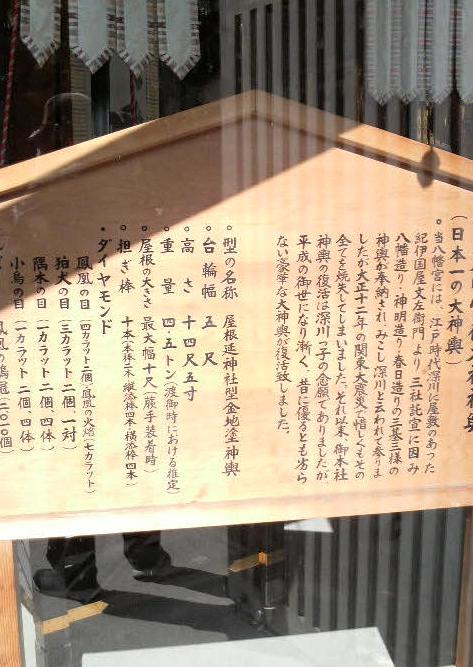 (日本一の大神輿)
。当八幡宮には、江戸時代深川に屋敷のあった
紀伊国屋文左衛門より三社託宣に因み
八幡造り・神明造り・春日造りの三基三様の
神輿が奉納され、みこし深川と云われて参りま
したが大正十二年の関東大震災で惜しくもその
全てを焼失してしまいました。それ以来、御本社
神輿の復活は深川っ子の念願でありましたが、
平成の御世になり漸く、昔に優るとも劣ら
ない豪華な大神輿が復活致しました。
。型の名称 屋根延神社型金地塗神輿
。台輪幅 五尺
。高さ 十四尺五寸
。重量 四・五トン(渡御時における推定)
。屋根の大きさ 最大幅十尺(蕨手装着時)
。担ぎ棒 十本(本体二本、縦添棒四本・横添棒四本)
・ダイヤモンド
鳳凰の目(四カラット二個・鳳凰の火焔(七カラット)
狛犬の目(三カラット二個 一対)
隅木の目(一カラット二個、四体)
小鳥の目(一カラット二個、四体)
鳳凰の鶏冠二〇一〇個